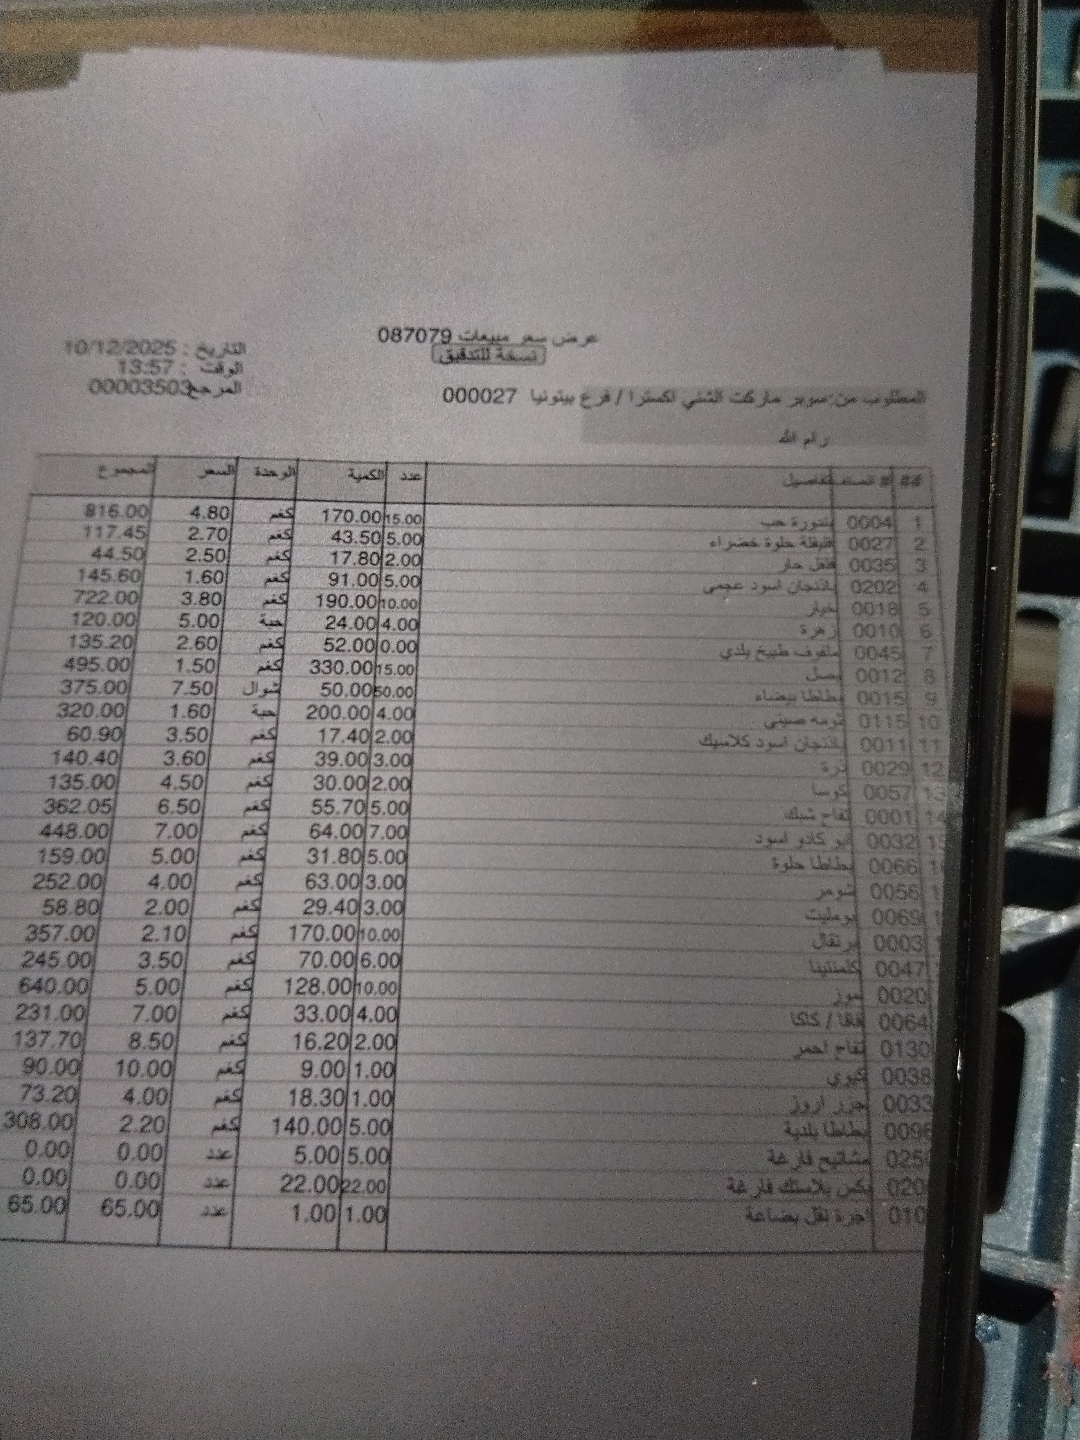 عرض سعر مبيعات 087079
نسخة للتدقيق
التاريخ : 10/12/2025
الوقت : 13:57
المرجع 00003503
المطلوب من: سوبر ماركت الشني اكسترا / فرع بيتونيا 000027
رام الله
## # الصنف تفاصيل عدد الكمية الوحدة السعر المجموع
1 0004 بندورة حب 15.00 170.00 كغم 4.80 816.00
2 0027 فليفلة حلوة خضراء 5.00 43.50 كغم 2.70 117.45
3 0035 فلفل حار 2.00 17.80 كغم 2.50 44.50
4 0202 باذنجان اسود عجمي 5.00 91.00 كغم 1.60 145.60
5 0018 خيار 10.00 190.00 كغم 3.80 722.00
6 0010 زهرة 4.00 24.00 حبة 5.00 120.00
7 0045 ملفوف طبيخ بلدي 0.00 52.00 كغم 2.60 135.20
8 0012 بصل 15.00 330.00 كغم 1.50 495.00
9 0015 بطاطا بيضاء 50.00 50.00 شوال 7.50 375.00
10 0115 ثومه صيني 4.00 200.00 حبة 1.60 320.00
11 0011 باذنجان اسود كلاسيك 2.00 17.40 كغم 3.50 60.90
12 0029 ذرة 3.00 39.00 كغم 3.60 140.40
13 0057 كوسا 2.00 30.00 كغم 4.50 135.00
14 0001 تفاح شبك 5.00 55.70 كغم 6.50 362.05
15 0032 ابو كادو اسود 7.00 64.00 كغم 7.00 448.00
0066 بطاطا حلوة 5.00 31.80 كغم 5.00 159.00
0056 شومر 3.00 63.00 كغم 4.00 252.00
0069 بومليت 3.00 29.40 كغم 2.00 58.80
0003 برتقال 10.00 170.00 كغم 2.10 357.00
0047 كلمنتينا 6.00 70.00 كغم 3.50 245.00
0020 موز 10.00 128.00 كغم 5.00 640.00
0064 افقا / كاكا 4.00 33.00 كغم 7.00 231.00
0130 تفاح احمر 2.00 16.20 كغم 8.50 137.70
0038 كيوي 1.00 9.00 كغم 10.00 90.00
0033 جزر اروز 1.00 18.30 كغم 4.00 73.20
0096 بطاطا بلدية 5.00 140.00 كغم 2.20 308.00
025 مشاتيح فارغة 5.00 5.00 عدد 0.00 0.00
020 بكس بلاستك فارغة 22.00 22.00 عدد 0.00 0.00
010 اجرة نقل بضاعة 1.00 1.00 عدد 65.00 65.00